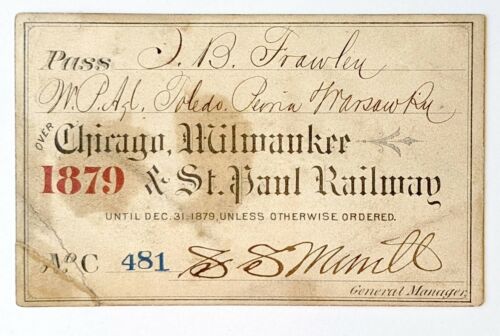 Pass J. B. Frawley
W. P. Agt. Toledo. Peoria Warsaw Ry.
OVER
Chicago, Milwaukee
1879 & St. Paul Railway
UNTIL DEC. 31, 1879, UNLESS OTHERWISE ORDERED.
No C 481 S S Merrill
General Manager.